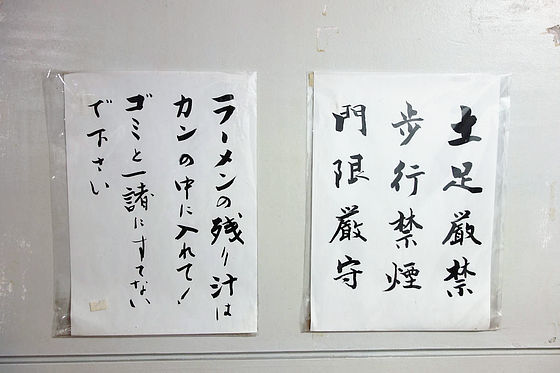 土足厳禁
歩行禁煙
門限厳守
ラーメンの残り汁は
カンの中に入れて!
ゴミと一諸にすてない
で下さい